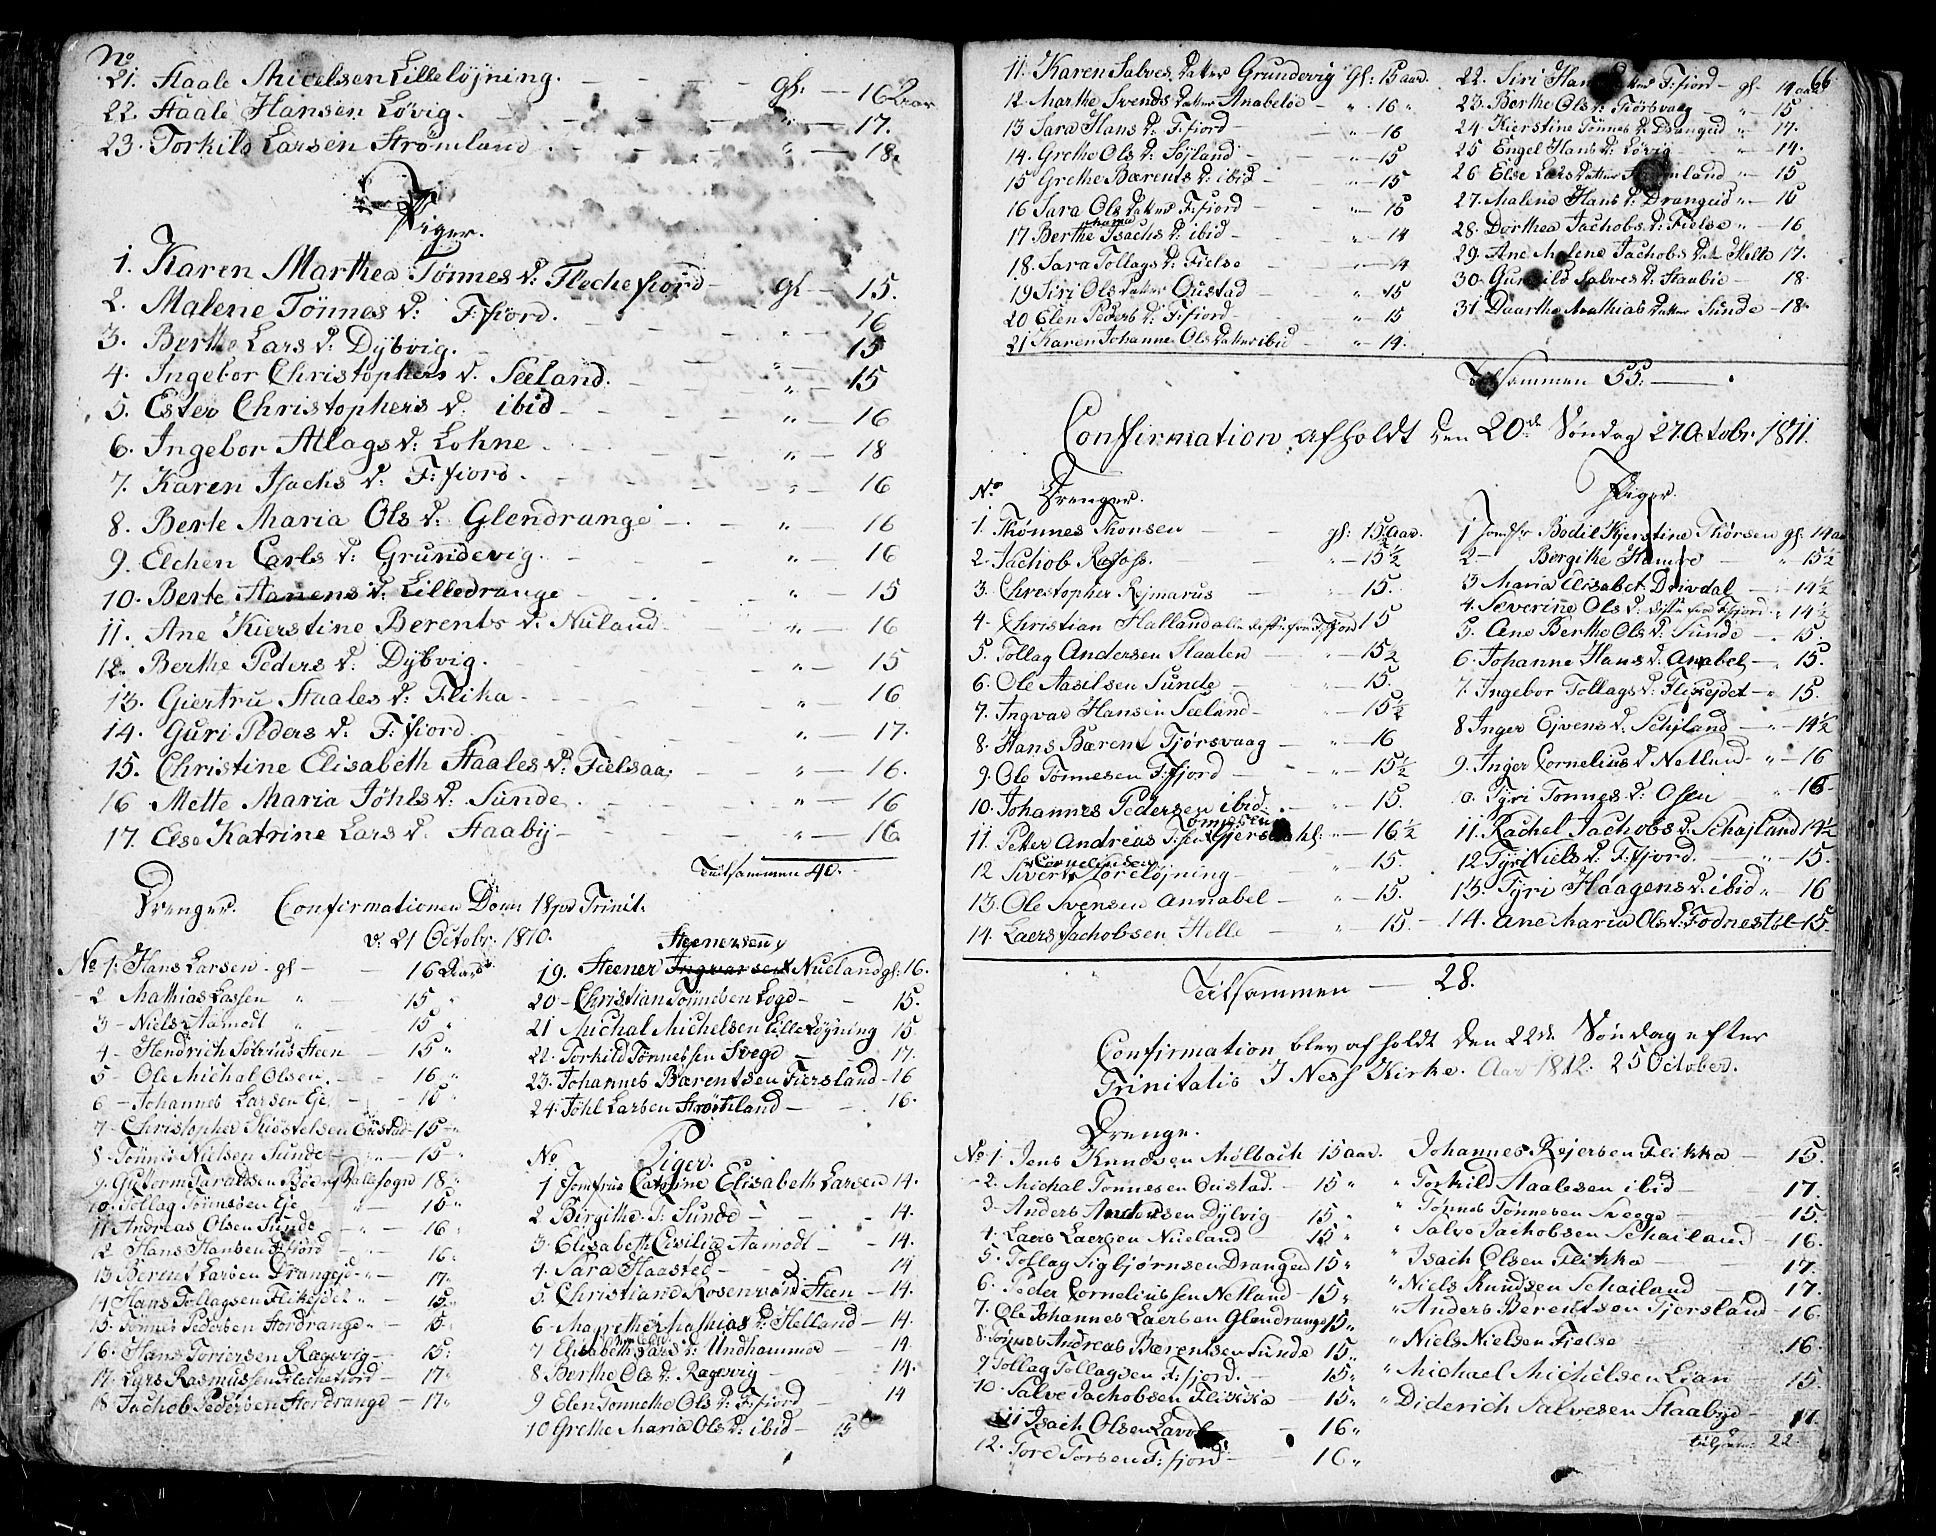 No
21. Staale Micelsen Lilleløjning. gl: — 16 Aar
22. Staale Hansen Løvig. — 17.
23. Torkild Larsen Strømland " — 18.
Piger.
1. Karen Marthea Tønnes d: Flechefiord gl — 15.
2. Malene Tønnes d: F:fiord. " — 16
3. Berthe Lars d: Dybvig. " — 15
4. Ingebor Christophers d. Seeland. " — 15
5. Ester Christophers d: ibid " — 16
6. Ingebor Atlags d: Lohne " — 18
7. Karen Isachs d: F:fiord. " — 16
8. Berte Maria Ols d: Glendrange " — 16
9. Elchen Carls d: Grundevig. " — 16
10. Berte Hanens d: Lilledrange " — 15
11. Ane Kierstine Berents d: Nuland " — 16
12. Berthe Peders d: Dybvig. " — 15
13. Giertru Staales d: Flika " — 16
14. Guri Peders d: F:fiord " — 17.
15. Christine Elisabeth Staales d: Fielsaa. " — 16.
16 Mette Maria Jøhls d: Sunde " — 16
17. Else Katrine Lars d. Staaby — " — 16
Tilsammen 40.
Drenger. Confirmationen Dom: 18 p: Trinit.
d. 21 Octobr: 1810.
No 1. Hans Larsen gl — 16 Aar
2 Mathias Lassen " 15 "
3 — Niels Aamodt " 15 "
4 — Hendrich Steen — 15 "
5 — Ole Michal Olsen. — 16 "
6 — Johannes Larsen Eje — 15 "
7 — Christopher Oustad — 15 "
8 Tønnis Nielsen Sunde — 15 "
9. Guttorm Taraldsen 18 "
10. Tollag Tønnesen Eje " 15 "
11 Andreas Olsen Sunde — " 16 "
12 Hans Hansen F:fiord — 16 "
13 Berent Larsen Drangejd — " 17 "
14 Hans Tollagsen Flikejdet — " 15 "
15. Tønnes Pedersen Stordrange " 15 "
16. Hans Toriersen Rægevig — 15.
17. Lars Rasmussen Flechefiord — 17 "
18 Jachob Pedersen Stordrange — 17 "
Steenersen
19. Steener Ingvarsen Nueland gl: 16.
20 — Christian Tønnesen Loge — 15.
21 Michal Michelsen Lille Løgning 15
22. Torkild Tønnessen Svege — 17.
23. Johannes Bærentsen Fiersland — 16
24. Jøhl Larsen Strømland — 16.
No Piger.
1 Jomfrue Catrine Elisabeth Larsen 14.
2 Birgithe T: Sunde — 14.
3. Elisabeth Civilia Aamodt — 14.
4. Sara Haasted — 14
5 Christiane Rosenvold Steen — 14.
6 — Margrethe Mathias d: Helland — 14.
7 Elisabeth Lars d: Undhammer — 14
8 Berthe Ols d: Ragevig — 14.
9 Elen Tonnette Ols d: F:fiord — 14
10 Grethe Maria Ols d: ibid — 15
66
11. Karen Salves datter Grundevig gl: 15 aar.
12 Marthe Svends datter Anabeløe " 16 "
13 Sara Hans d: F:fiord — " 16
14. Grethe Ols d: Søjland — " 15
15 Grethe Bærents d: ibid — " 15
16 Sara Ols datter F:fiord — " 15
Maria
17 Berthe Isachs d: ibid — " 14
18. Sara Tollags d: Fielse " 14
19 Siri Ols datter Oustad " 15
20 Elen Peders d: F:fiord — " 15
21 Karen Johanne Ols datter ibid " 14.
22. Siri Hans datter F:fiord — gl — 14 aar
23. Berthe Ols d: Tiørsvaag — " 15
24 Kierstine Tønnes d: Drangeid " 14.
25 Engel Hans d: Løvig — " 14.
26 Else Lars datter Strømland " 15
27. Malene Hans d: Drangeid " 15
28. Dorthea Jachobs d: Fielse " 16
29. Ane Malene Jachobs dat: Helle 17.
30. Gunild Salves d: Staabie — 18
31 Daarthe Mathias datter Sunde — 18.
Tilsammen 55.
Confirmation afholdt den 20de Søndag 27. Octobr. 1811.
No Drenger.
1. Thønnes Thonsen — gl: 15½ aar.
2. Jachob Refoss. — " — 15½
3. Christopher Rejmarus " 15.
4. Christian Halland 15
5. Tollag Andersen Haalen — 15½
6. Ole Aasilsen Sunde " 15.
7. Ingvar Hansen Seeland — " 15½
8. Hans Bærent Tjørsvaag — " 16
9. Ole Tonnesen F:fjord — " — 15½
10. Johannes Pedersen ibid. " 15.
11. Peter Andreas " — 16½
Cornelius
12 Sivert Storeløjning — " 15.
13. Ole Svensen Annabel — " 15.
14. Laers Jachobsen Helle — " 15.
Piger.
1 Jomfr Bodil Kjerstine Thørsen gl: 14 aar
2 — Borgithe " 15½
3 Maria Elisabet Drivdal " 14½
4. Severine Ols d: F:fjord " 14½
5. Ane Berthe Ols d: Sunde — " 15.
6. Johanne Hans d: Anabel — " 15.
7. Ingebor Tollags d: Flikejdet — " 15.
8 Inger Ejvens d: Schjland — " 14½
9. Inger Cornelius d Netland " — 16
0. Tyri Tonnes d: Osen " — 16
11. Rachel Jachobs d: Schajland 14½
12 Tyri Niels d: F:fjord. — " 15.
13. Tyri Haagens d: ibid " — 16
14. Ane Maria Ols d: Fodnestøl — 15.
Tilsammen — 28.
Confirmation blev afholdt den 22de Søndag efter
Trinitatis I Ness Kirke. Aar 1812. 25 October.
Drenge.
No 1. Jens Knudsen Mølbach 15 aar.
2. Michal Tonnesen Oustad. — 15 "
3. Anders Andersen Dylvig 15 "
4. Laers Laersen Nueland 15 "
5. Tollag Sigbjørnsen Drangeid 15 "
6. Peder Corneliussen Netland — 15 "
7. Ole Johannes Laersen Glendrange 15 "
8. Tonnes Andreas Bærentsen Sunde 15 "
9 Tollag Tollagsen F:fjord. — 15 "
10. Salve Jachobsen Flikka — 15 "
11 Isach Olsen 16 "
12. Tore Torsen F:fjord — 16 "
Johannes Rejersen Flikka — 15.
" Torkild Staalesen ibid — 17.
" Tønnes Tønnesen Svege — 15.
" Salve Jachobsen Schailand — 16.
" Isach Olsen Flikka — 17.
" Niels Knudsen Schailand — 17.
" Anders Berentsen Fjersland — 16.
" Niels Nielsen Fielse — 16.
" Michael Michelsen Lian — 15.
" Diderich Salvesen Staabye — 17.
22.